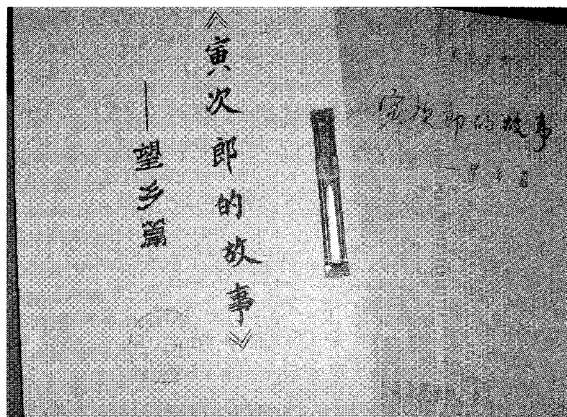 《寅次郎的故事》
——望乡篇
寅次郎的故事